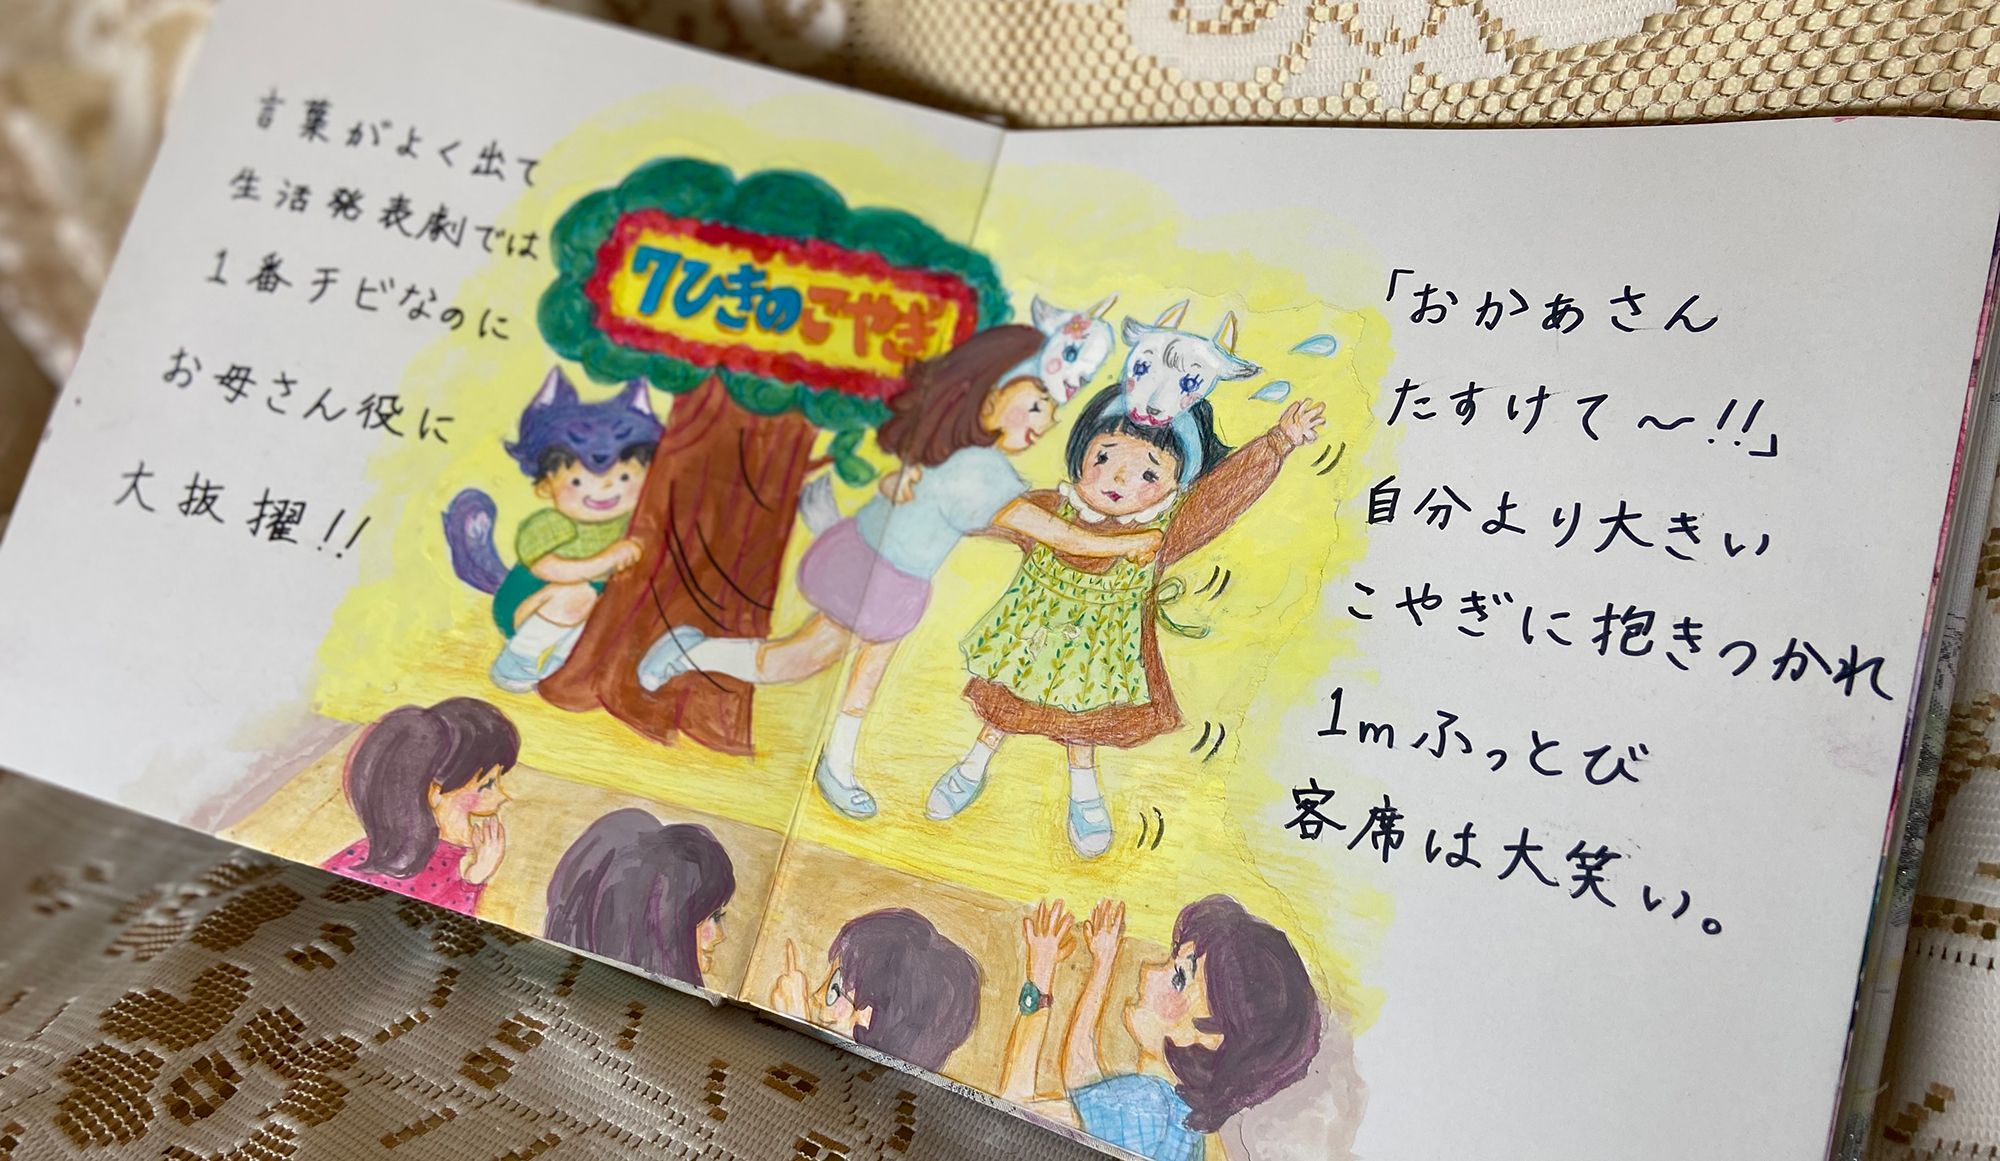 言葉がよく出て
生活発表劇では
1番チビなのに
お母さん役に
大抜擢!!
7ひきのこやぎ
「おかぁさん
たすけて〜!!」
自分より大きい
こやぎに抱きつかれ
1mふっとび
客席は大笑い。